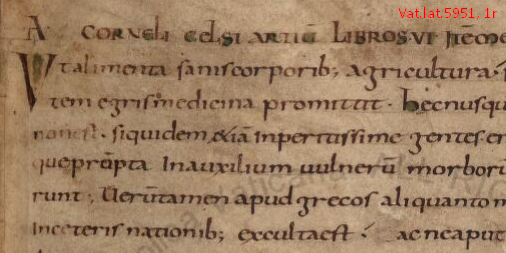 Vat.lat.5951, 1r
A CORNELI CELSI ARTIŪ LIBROS·VI ITĒ
Vtalimenta saniscorporib; agricultura·
tem egris medicina promittit· hec
nonest· siquidem &iā inpertissime gentes
queprōpta Inauxilium uulnerū morborū
runt· Uerūtamen apud grecos aliquanto
Inceteris nationib; excultaest· ac